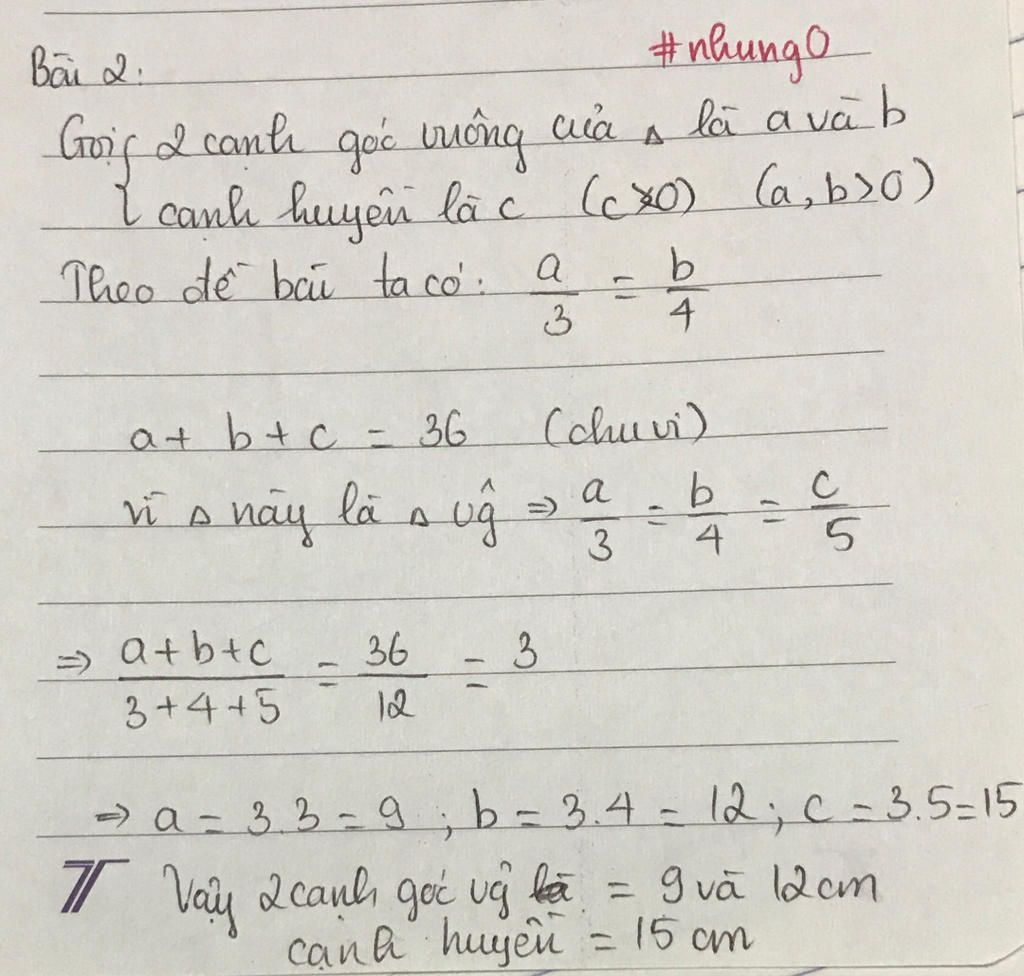 #nhung0
Bài 2:
Gọi 2 cạnh góc vuông của Δ là a và b
cạnh huyền là c (c>0) (a, b>0)
Theo đề bài ta có: a/3 = b/4
a + b + c = 36 (chu vi)
vì Δ này là Δ vĝ ⇒ a/3 = b/4 = c/5
⇒ (a+b+c)/(3+4+5) = 36/12 = 3
⇒ a = 3.3 = 9 ; b = 3.4 = 12 ; c = 3.5 = 15
Vậy 2 cạnh góc vĝ = 9 và 12 cm
cạnh huyền = 15 cm